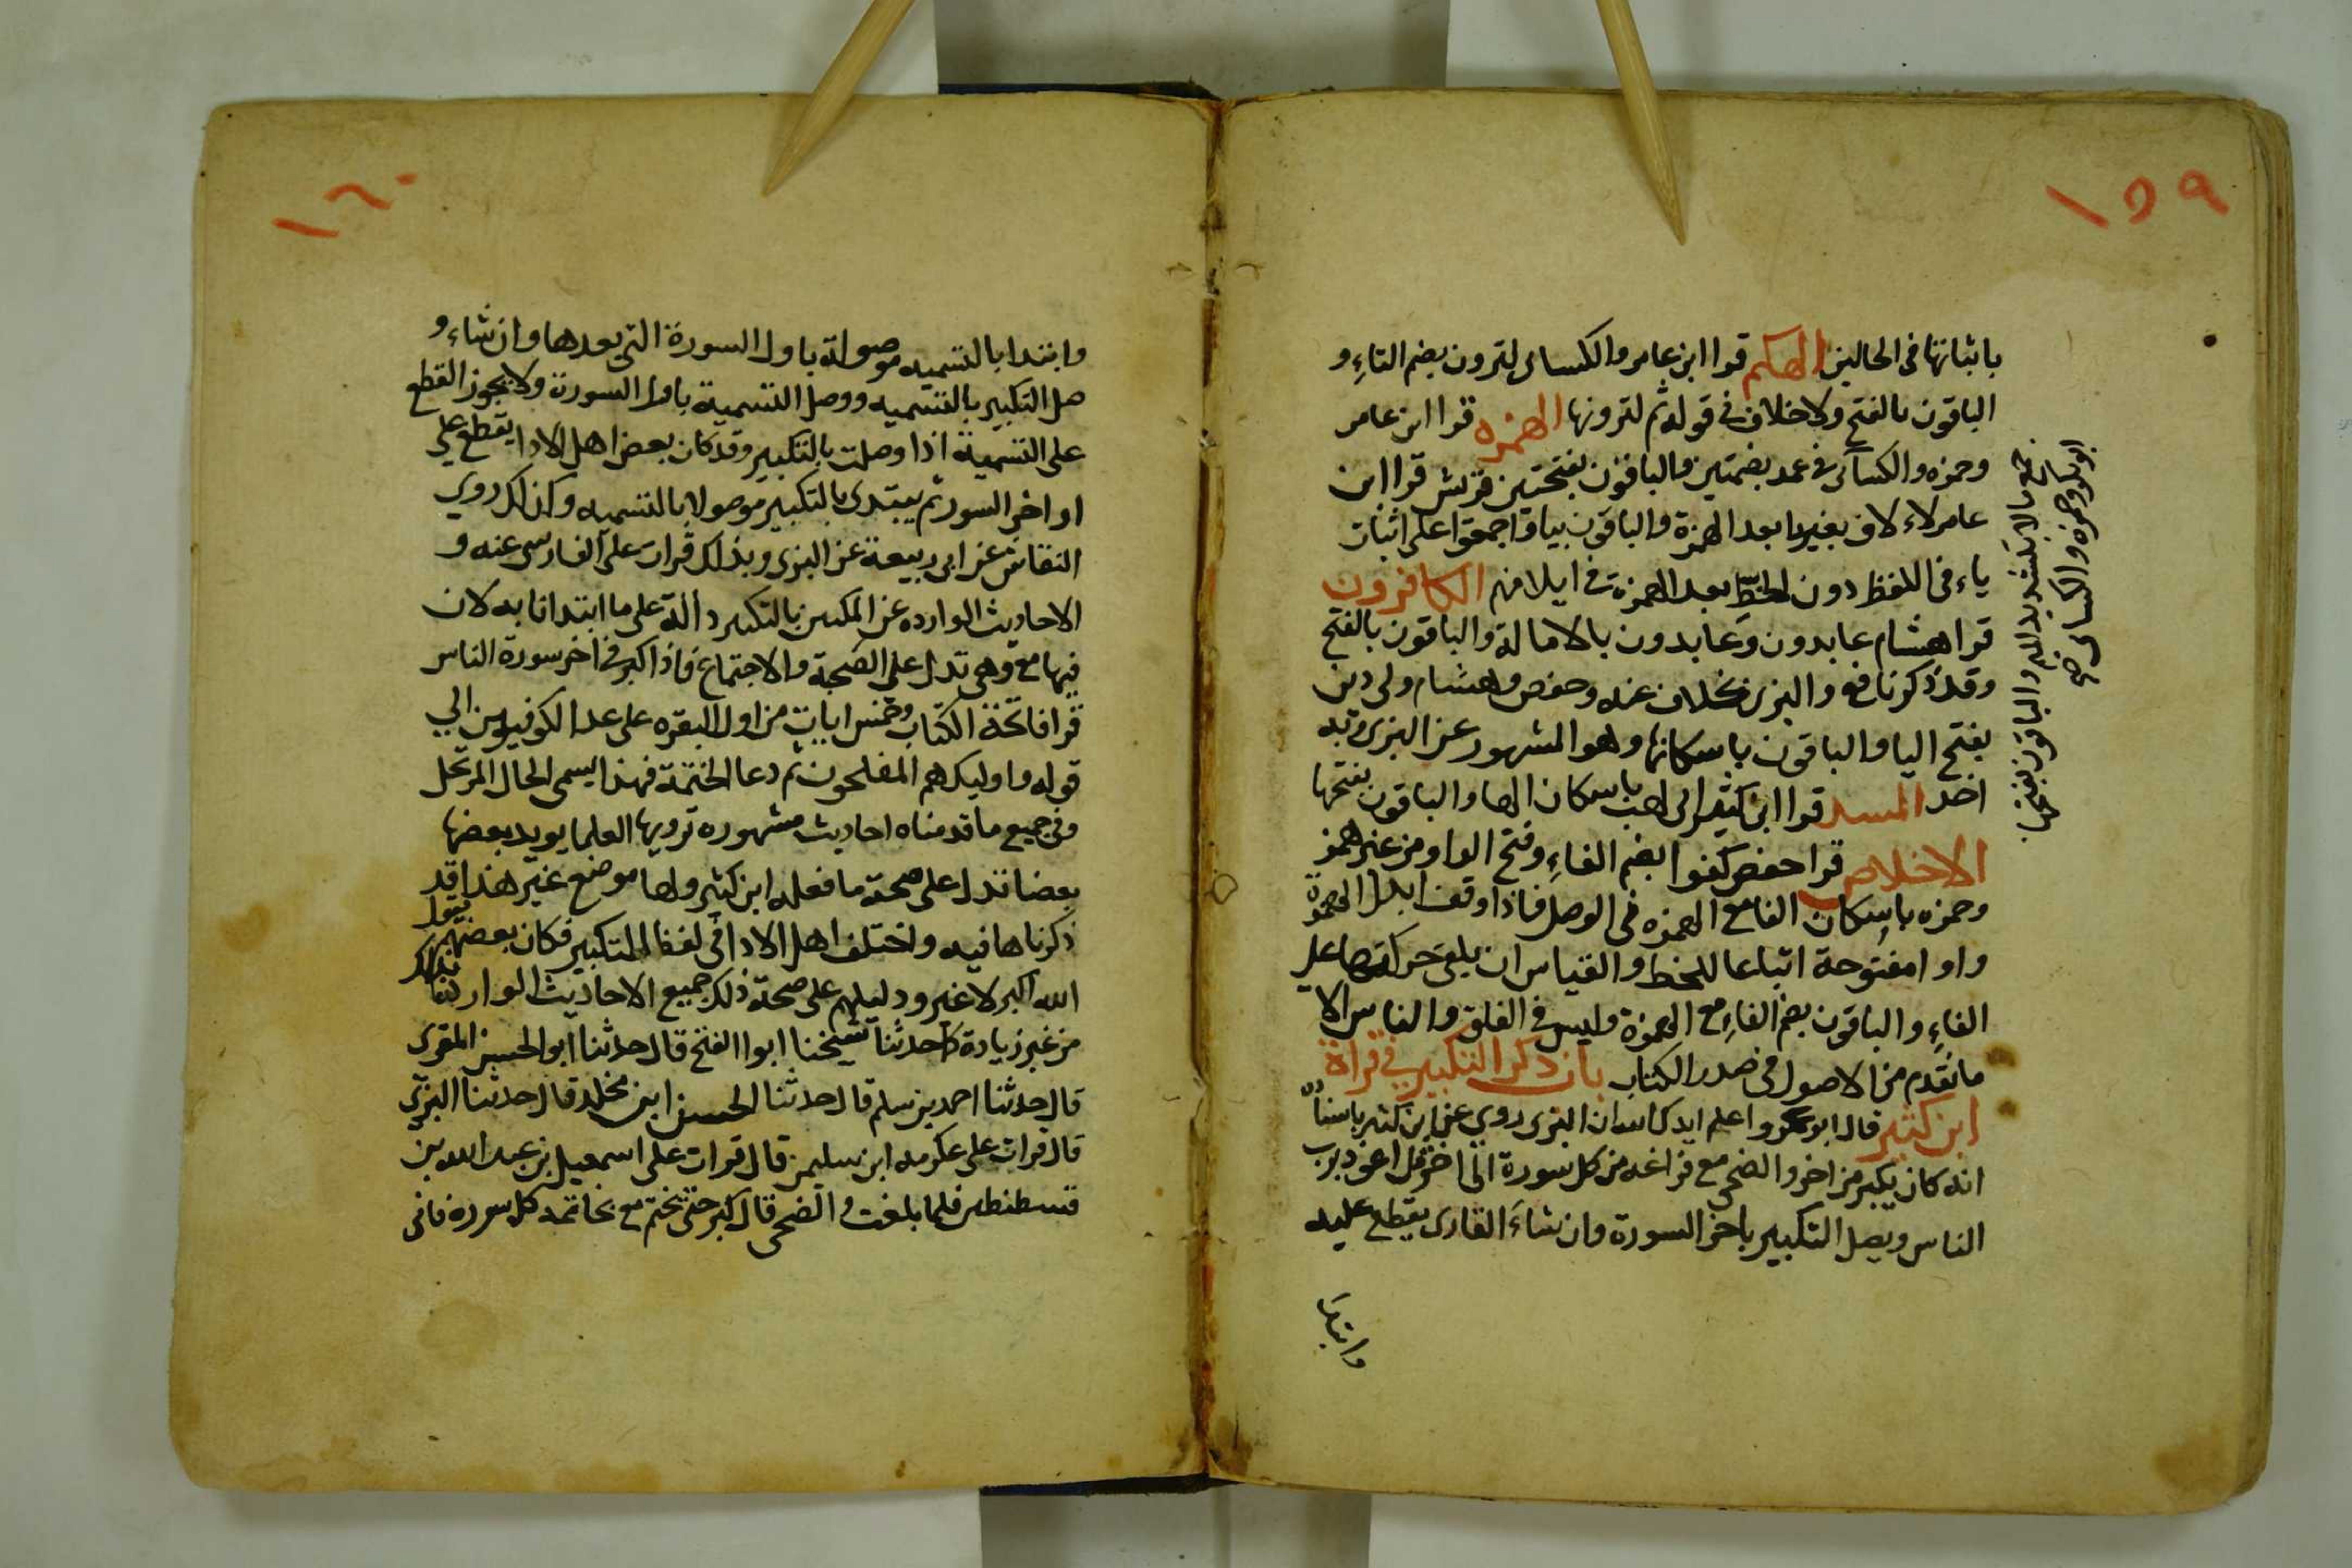 ١٥٩
باثباتها فى الحالين الهكم قرا ابن عامر والكساى لترون بضم التاءِ و
الباقون بالفتح ولا خلاف فى قوله ثم لترونها الهمزه قرا ابن عامر
وحمزه والكسآى فى عمد بضمتين والباقون بفتحتين قريش قرا ابن
عامر لاءلاف بغير يا بعد الهمزة والباقون بيا واجمعوا على اثبات
ياء فى اللفظ دون الخط بعد الهمزة فى ايلافهم الكافرون
قرا هشام عابدون وعابدون بالامالة والباقون بالفتح
وقد ذكر نافع والبزى بخلاف عنه وحفص وهشام ولى دين
بفتح اليا والباقون باسكانها وهو المشهور عن البزى وبه
اخذ المسد قرا ابن كثير ابى لهب باسكان الها والباقون بفتحها
الاخلاص قرا حفص كفوا بضم الفاءِ وفتح الواو من غير همز
وحمزه باسكان الفا مع الهمزه فى الوصل فاذا وقف ابدل الهمزة
واوا مفتوحة اتباعا للخط والقياس ان يلقى حركتها على
الفاءِ والباقون بضم الفاءِ مع الهمزة وليس فى الفلق والناس الا
ما تقدم من الاصول فى صدر الكتاب باب ذكر التكبير فى قراة
ابن كثير قال ابو عمرو اعلم ايدك الله ان البزى روى عن ابن كثير باسناده
انه كان يكبر من اخر والضحى مع فراغه من كل سورة الى اخر قل اعوذ برب
الناس ويصل التكبير باخر السورة وان شاءَ القارى يقطع عليه
وابتدا
ابو بكر وحمزه والكساى
جمع مالا بتشديد الميم والباقون بتخفيفها
١٦٠
وابتدا بالتسميه موصولة باول السورة التى بعدها وان شاء و
صل التكبير بالتسميه ووصل التسمية باول السورة ولا يجوز القطع
على التسمية اذا وصلت بالتكبير وقد كان بعض اهل الادا يقطع على
اواخر السور ثم يبتدى بالتكبير موصولا بالتسميه وكذلك روى
النقاش عن ابى ربيعة عن البزى وبذلك قرات على الفارسى عنه و
الاحاديث الوارده عن المكيين بالتكبير دالة على ما ابتدانا به لان
فيها مع وهى تدل على الصحبة والاجتماع فاذا كبر فى اخر سورة الناس
قرا فاتحة الكتاب وخمس ايات من اول البقره على عدد الكوفيين الى
قوله واوليك هم المفلحون ثم دعا الختمة فهذا يسمى الحال المرتحل
وفى جميع ما قدمناه احاديث مشهوره ترويها العلما يويد بعضها
بعضا تدل على صحة ما فعله ابن كثير ولها موضع غير هذا قد
ذكرناها فيه واختلف اهل الادا فى لفظ التكبير فكان بعضهم يقول
الله اكبر لا غير ودليلهم على صحة ذلك جميع الاحاديث الوارده بذلك
من غير زيادة كا حدثنا شيخنا ابو الفتح قال حدثنا ابو الحسن المقرى
قال حدثنا احمد بن سلم قال حدثنا الحسن ابن مخلد قال حدثنا البزى
قال قرات على عكرمه ابن سليمن قال قرات على اسمعيل بن عبد الله بن
قسطنطين فلما بلغت والضحى قال كبر حتى تختم مع خاتمه كل سورة فانى